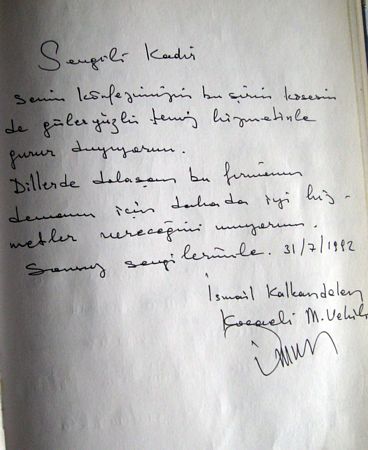 Sevgili Kadir
senin körfezimizin bu şirin köşesin
de güleryüzlü temiz hizmetinle
gurur duyuyorum.
Dillerde dolaşan bu
için dahada iyi hiz-
metler vereceğini umuyorum.
Sonsuz sevgilerimle. 31/7/1992
İsmail Kalkandelen
Kocaeli M.Vekili